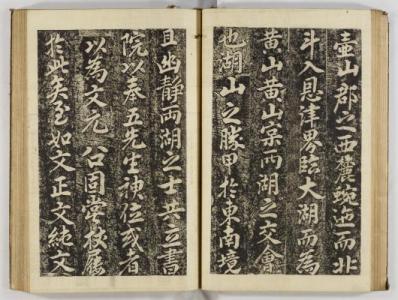 壺山郡之西麓蜿迤而北
斗入恩津界臨大湖而為
黄山黄山寔兩湖之交會
也湖山之勝甲於東南境
且幽靜兩湖之士共立書
院以奉五先生神位或者
以為文元公固嘗杖屨
於此矣至如文正文純文